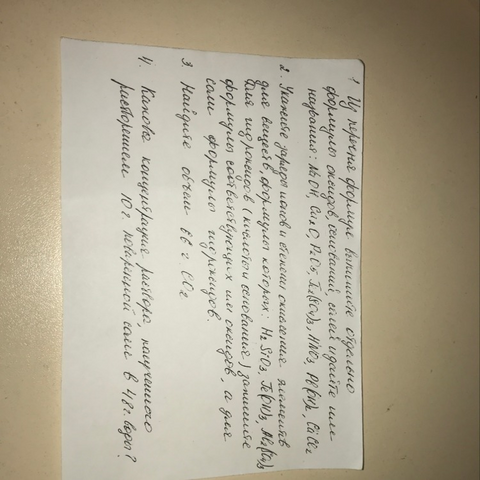 1 Из перечня формул выпишите отдельно
формулы оксидов, оснований, солей и дайте им
названия: NaOH, Cu2O, P2O5, Fe2(SO4)3, HNO3, CaCl2
2. Укажите заряды ионов и степени окисления элементов
для веществ, формулы которых: H2SiO3, Fe(OH)3, Al2(SO4)3
Для гидроксидов (кислоты и основания) запишите
формулы соответствующих им оксидов, а для
соли формулы гидроксидов.
3 Найдите объем 66 г. CO2
4. Какова концентрация раствора, полученного
растворением 10 г. поваренной соли в 48г. воды?